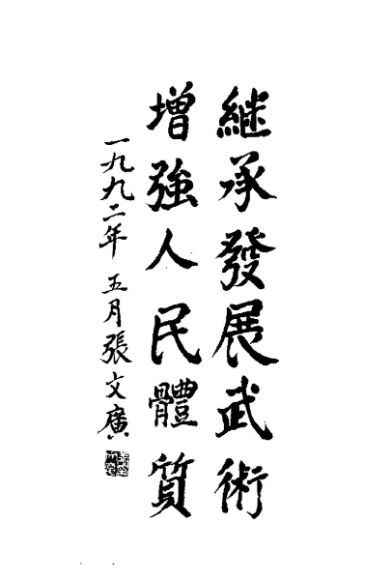 継承發展武術
增強人民體質
一九九二年 五月張文廣